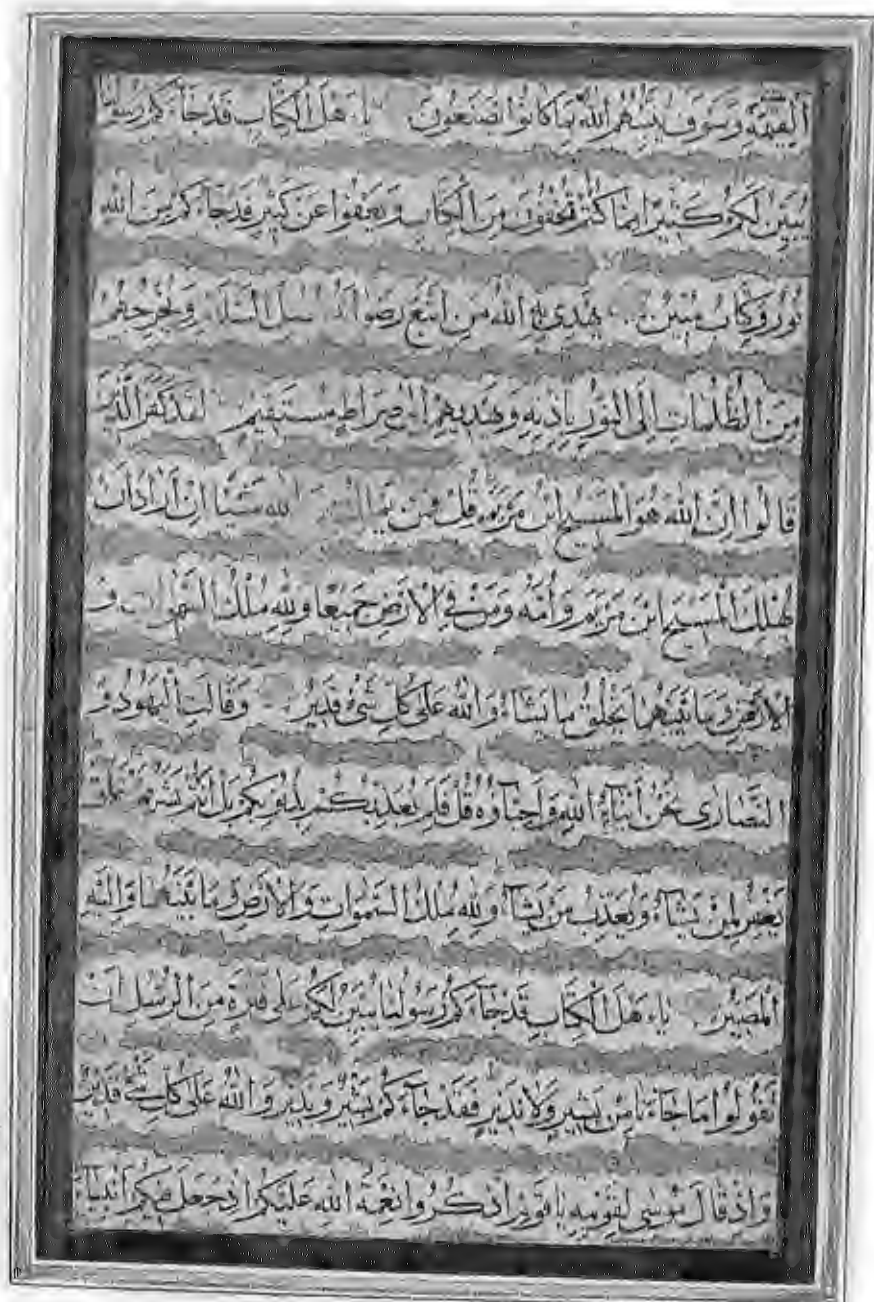 الْقِيمَةِ وَسَوْفَ يُنَبِّئُهُمُ اللَّهُ بِمَا كَانُوا يَصْنَعُونَ يَاءَهْلَ الْكِتَابِ قَدْ جَاءَكُمْ رَسُولُنَا
يُبَيِّنُ لَكُمْ كَثِيرًا مِمَّا كُنْتُمْ تُخْفُونَ مِنَ الْكِتَابِ وَيَعْفُوا عَنْ كَثِيرٍ قَدْ جَاءَكُمْ مِنَ اللَّهِ
نُورٌ وَكِتَابٌ مُبِينٌ يَهْدِي بِهِ اللَّهُ مَنِ اتَّبَعَ رِضْوَانَهُ سُبُلَ السَّلَامِ وَيُخْرِجُهُمْ
مِنَ الظُّلُمَاتِ إِلَى النُّورِ بِإِذْنِهِ وَيَهْدِيهِمْ إِلَى صِرَاطٍ مُسْتَقِيمٍ لَقَدْ كَفَرَ الَّذِينَ
قَالُوا إِنَّ اللَّهَ هُوَ الْمَسِيحُ ابْنُ مَرْيَمَ قُلْ فَمَنْ يَمْلِكُ مِنَ اللَّهِ شَيْئًا إِنْ أَرَادَ أَنْ
يُهْلِكَ الْمَسِيحَ ابْنَ مَرْيَمَ وَأُمَّهُ وَمَنْ فِي الْأَرْضِ جَمِيعًا وَلِلَّهِ مُلْكُ السَّمَوَاتِ وَ
الْأَرْضِ وَمَا بَيْنَهُمَا يَخْلُقُ مَا يَشَاءُ وَاللَّهُ عَلَى كُلِّ شَيْءٍ قَدِيرٌ وَقَالَتِ الْيَهُودُ وَ
النَّصَارَى نَحْنُ أَبْنَاءُ اللَّهِ وَأَحِبَّاؤُهُ قُلْ فَلِمَ يُعَذِّبُكُمْ بِذُنُوبِكُمْ بَلْ أَنْتُمْ بَشَرٌ مِمَّنْ خَلَقَ
يَغْفِرُ لِمَنْ يَشَاءُ وَيُعَذِّبُ مَنْ يَشَاءُ وَلِلَّهِ مُلْكُ السَّمَوَاتِ وَالْأَرْضِ وَمَا بَيْنَهُمَا وَإِلَيْهِ
الْمَصِيرُ يَاءَهْلَ الْكِتَابِ قَدْ جَاءَكُمْ رَسُولُنَا يُبَيِّنُ لَكُمْ عَلَى فَتْرَةٍ مِنَ الرُّسُلِ أَنْ
تَقُولُوا مَا جَاءَنَا مِنْ بَشِيرٍ وَلَا نَذِيرٍ فَقَدْ جَاءَكُمْ بَشِيرٌ وَنَذِيرٌ وَاللَّهُ عَلَى كُلِّ شَيْءٍ قَدِيرٌ
وَإِذْ قَالَ مُوسَى لِقَوْمِهِ يَا قَوْمِ اذْكُرُوا نِعْمَةَ اللَّهِ عَلَيْكُمْ إِذْ جَعَلَ فِيكُمْ أَنْبِيَاءَ